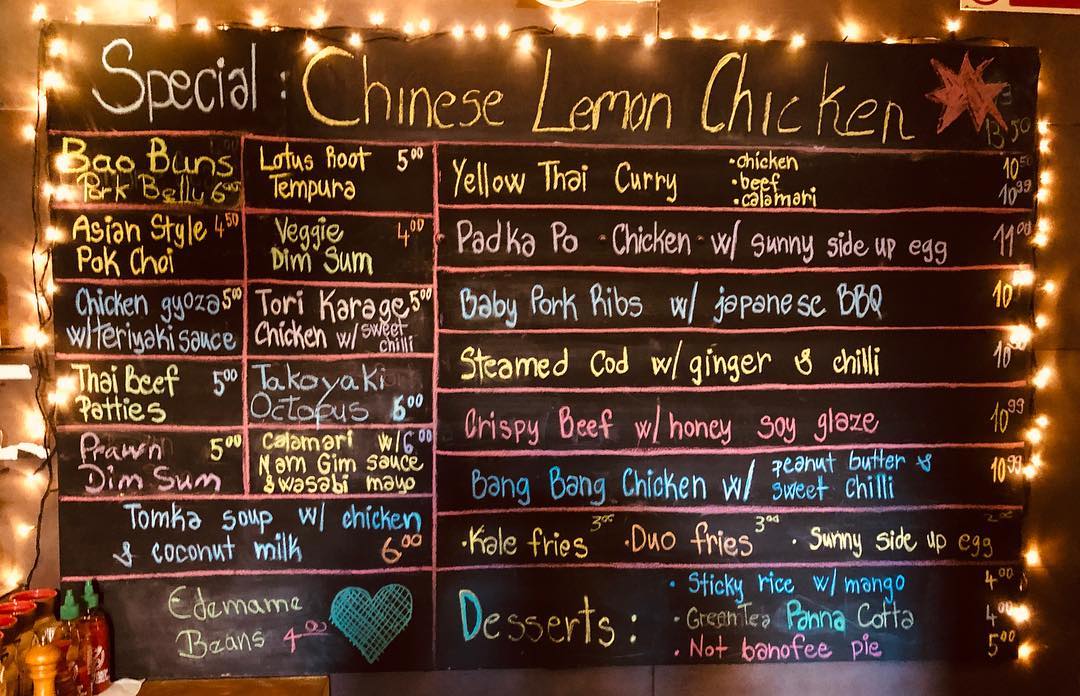 Special : Chinese Lemon Chicken
13.50
Bao Buns
Pork Belly 6
Asian Style 4.50
Pok Choi
Chicken gyoza 5.00
w/teriyaki sauce
Thai Beef 5.00
Patties
Prawn 5.00
Dim Sum
Lotus Root 5.00
Tempura
Veggie 4.00
Dim Sum
Tori Karage 5.00
Chicken w/ sweet
chilli
Takoyaki
Octopus 6.00
Calamari w/ 6.00
Nam Gim sauce
& wasabi mayo
Tomka soup w/ chicken
& coconut milk 6.00
Edemame
Beans 4.00
Yellow Thai Curry
• chicken 10.50
• beef
• calamari 10.99
Padka Po Chicken w/ sunny side up egg 11.00
Baby Pork Ribs w/ japanese BBQ 10
Steamed Cod w/ ginger & chilli 10
Crispy Beef w/ honey soy glaze 10.99
Bang Bang Chicken w/ peanut butter & 10.99
sweet chilli
• Kale fries 3.00 • Duo fries 3.00 • Sunny side up egg
Desserts :
• Sticky rice w/ mango 4.00
• Green Tea Panna Cotta 4.00
• Not banofee pie 5.00